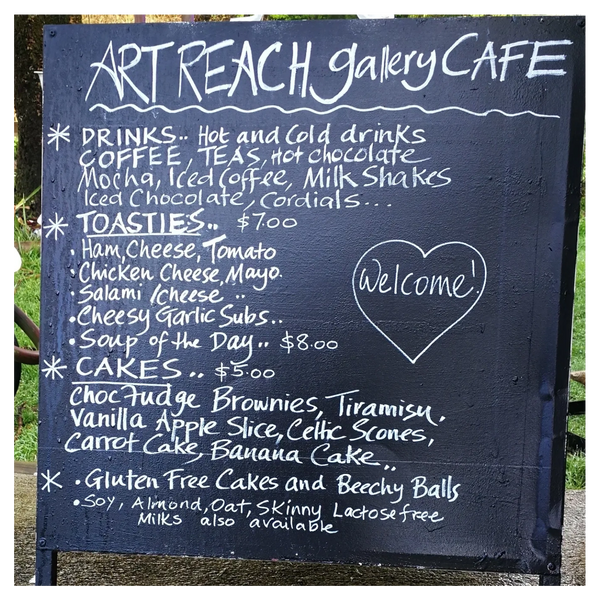 ART REACH gallery CAFE
* DRINKS.. Hot and Cold drinks
COFFEE, TEAS, Hot chocolate
Mocha, Iced Coffee, Milk Shakes
Iced Chocolate, Cordials...
* TOASTIES.. $7.00
• Ham, Cheese, Tomato
• Chicken Cheese, Mayo.
• Salami / cheese ..
• Cheesy Garlic Subs..
• Soup of the Day.. $8.00
Welcome!
* CAKES.. $5.00
Choc Fudge Brownies, Tiramisu,
Vanilla Apple Slice, Celtic Scones,
Carrot Cake, Banana Cake..
* • Gluten Free Cakes and Beechy Balls
• Soy, Almond, Oat, Skinny Lactose free
Milks also available